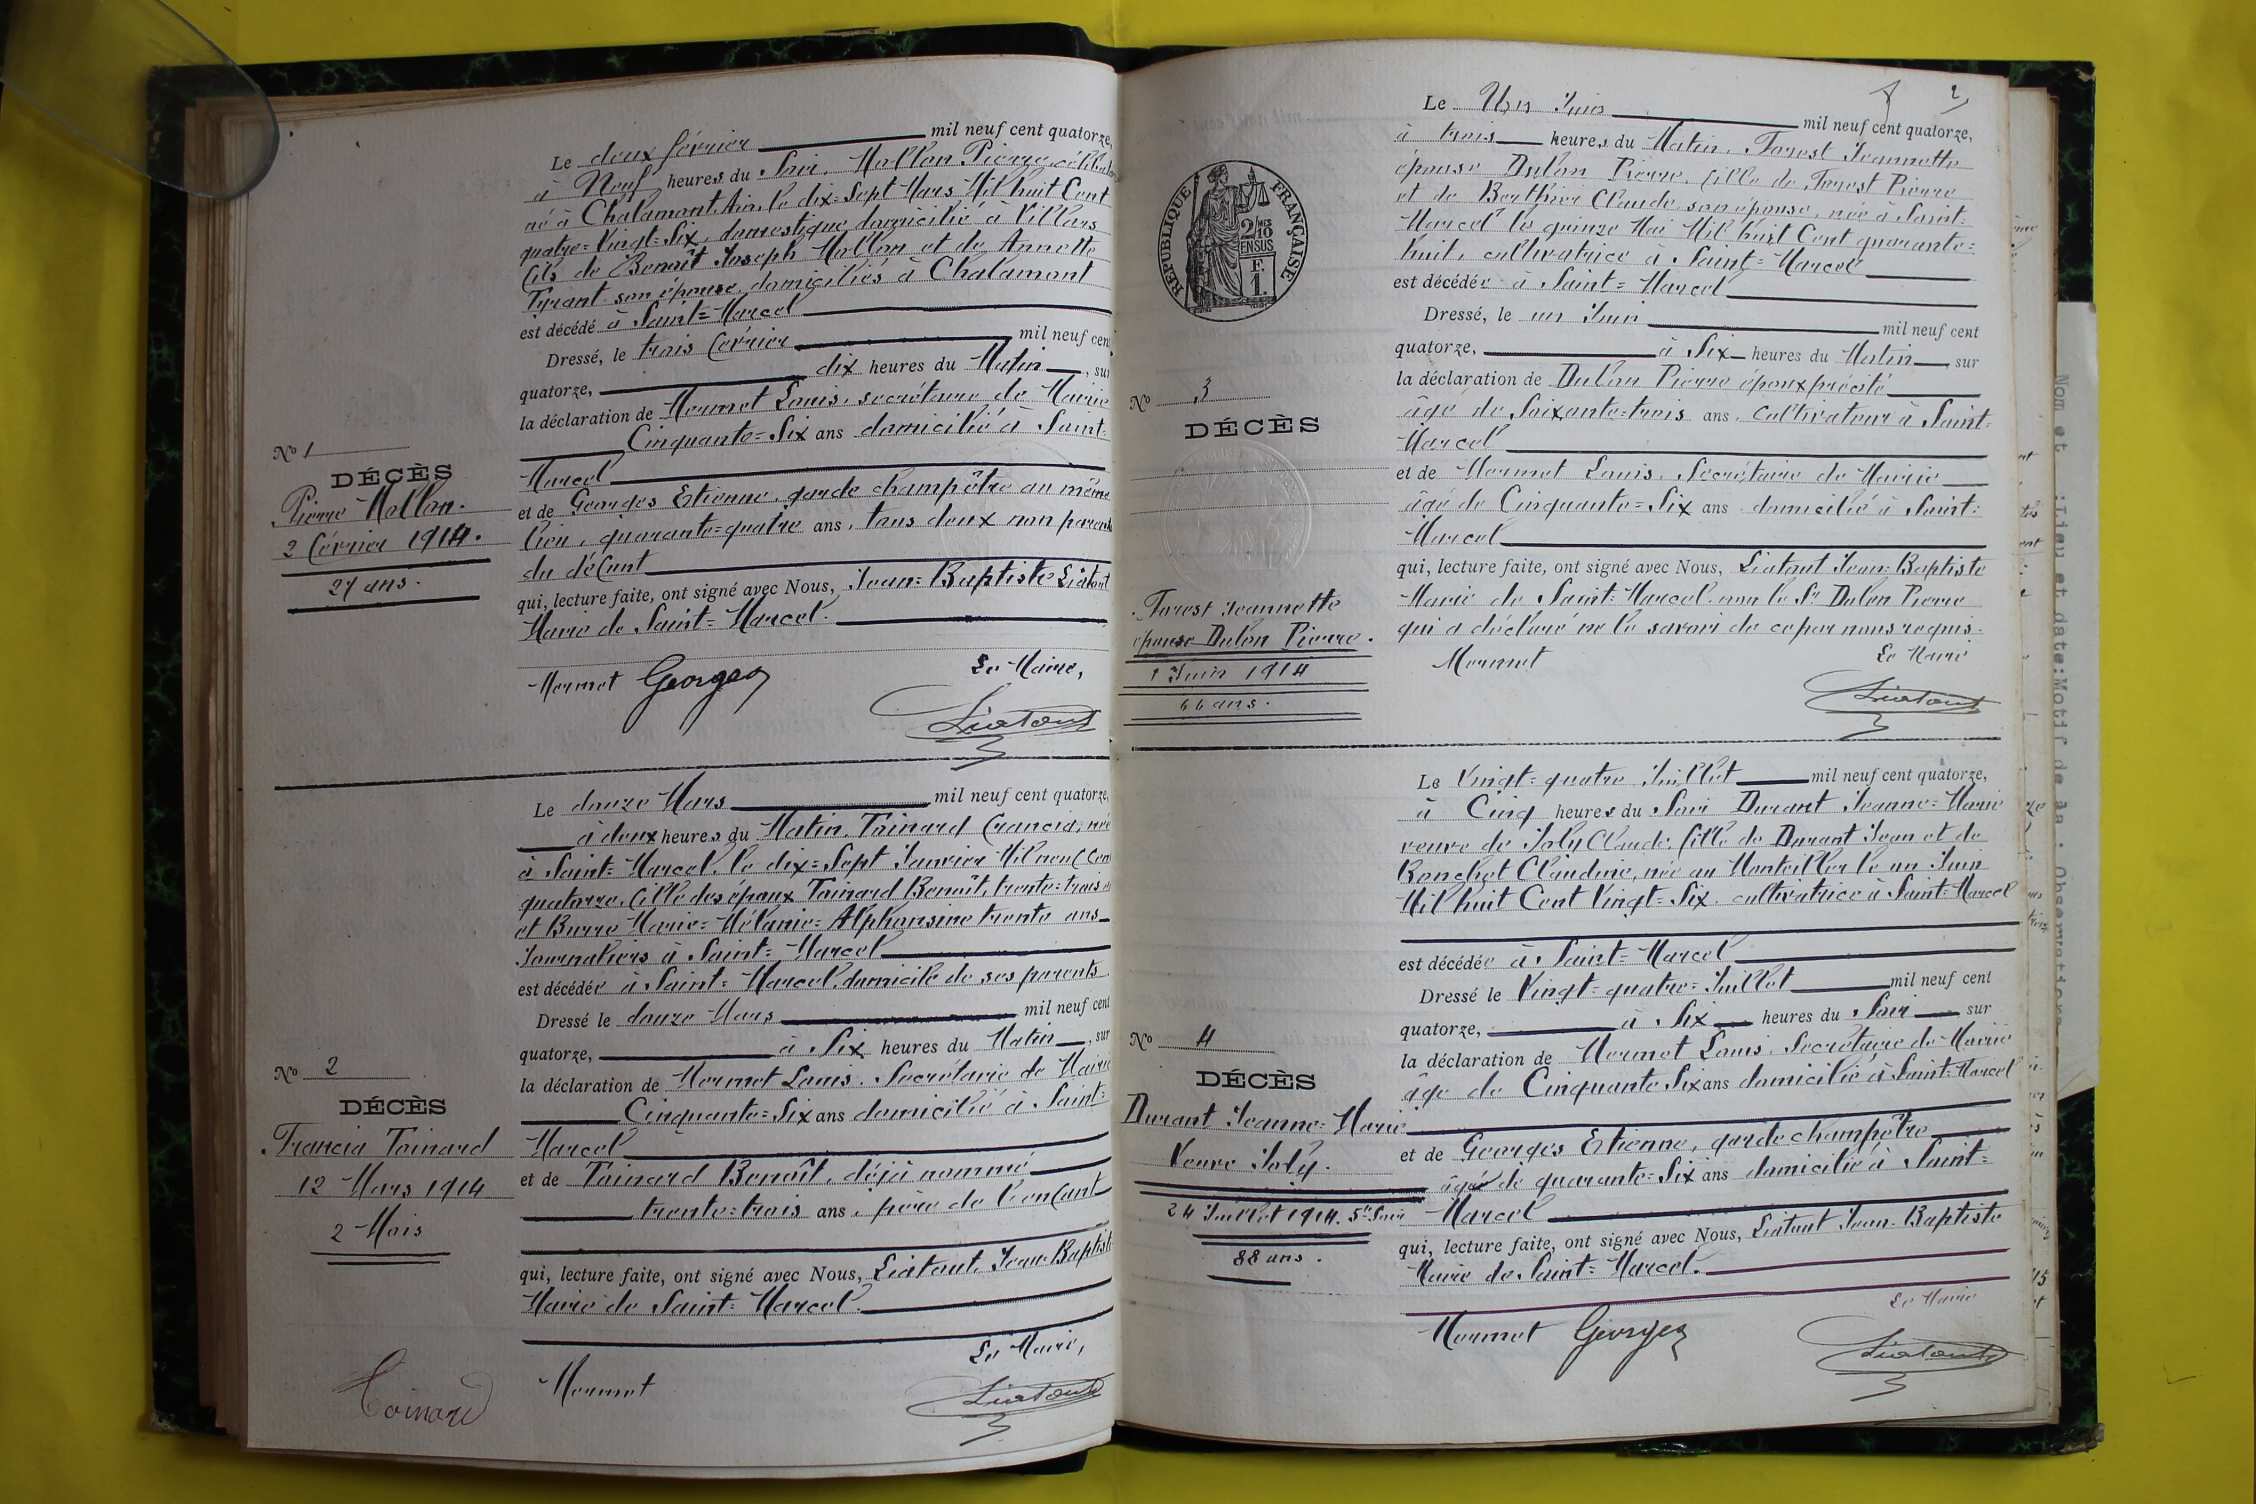 Le deux février mil neuf cent quatorze,
à Neuf heures du Soir, Mollon Pierre, céliba
né à Chalamont, Ain, le dix=Sept Mars Mil huit Cent
quatre=Vingt=Six, domestique domicilié à Villars
fils de Benoît Joseph Mollon et de Annette
Tyrant son épouse, domiciliés à Chalamont
est décédé à Saint=Marcel
Dressé, le trois février mil neuf cent
quatorze, dix heures du Matin, sur
la déclaration de Mermet Louis, secrétaire de Mairie
Cinquante=Six ans domicilié à Saint=
Marcel
et de Georges Etienne, garde champêtre au même
lieu, quarante=quatre ans, tous deux non parents
du défunt
qui, lecture faite, ont signé avec Nous, Jean=Baptiste Liatout
Maire de Saint=Marcel.
Mermet Georges Le Maire,
Liatout
No 1
DÉCÈS
Pierre Mollon.
2 février 1914.
27 ans.
Le douze Mars mil neuf cent quatorze,
à deux heures du Matin, Toinard Francia, née
à Saint=Marcel, le dix=Sept Janvier Mil neuf Cent
quatorze, fille des époux Toinard Benoît, trente=trois a
et Burre Marie=Mélanie=Alphonsine trente ans
Journaliers à Saint=Marcel
est décédée à Saint=Marcel, domicile de ses parents
Dressé le douze Mars mil neuf cent
quatorze, à Six heures du Matin, sur
la déclaration de Mermet Louis, Secrétaire de Mairie
Cinquante=Six ans domicilié à Saint=
Marcel
et de Toinard Benoît, déjà nommé
trente=trois ans, père de l'enfant
qui, lecture faite, ont signé avec Nous, Liatout, Jean Baptiste
Maire de Saint=Marcel.
Le Maire,
Toinard Mermet Liatout
No 2
DÉCÈS
Francia Toinard
12 Mars 1914
2 Mois
2
Le Un Juin mil neuf cent quatorze,
à trois heures du Matin, Forest Jeannette
épouse Dulon Pierre, fille de Forest Pierre
et de Berthier Claude son épouse, née à Saint=
Marcel le quinze Mai Mil huit Cent quarante=
huit, cultivatrice à Saint=Marcel
est décédée à Saint=Marcel
Dressé, le un Juin mil neuf cent
quatorze, à Six heures du Matin, sur
la déclaration de Dulon Pierre époux précité
âgé de Soixante=trois ans, cultivateur à Saint=
Marcel
et de Mermet Louis, Secrétaire de Mairie
âgé de Cinquante=Six ans domicilié à Saint=
Marcel
qui, lecture faite, ont signé avec Nous, Liatout Jean=Baptiste
Maire de Saint=Marcel, non le Sr Dulon Pierre
qui a déclaré ne le savoir de ce par nous requis.
Mermet Le Maire
Liatout
RÉPUBLIQUE FRANÇAISE
2/10 EN SUS
F. 1.
No 3
DÉCÈS
Forest Jeannette
épouse Dulon Pierre.
1 Juin 1914
66 ans.
Le Vingt=quatre Juillet mil neuf cent quatorze,
à Cinq heures du Soir Durant Jeanne=Marie
veuve de Joly Claude, fille de Durant Jean et de
Ronchet Claudine, née au Montellier le un Juin
Mil huit Cent Vingt=Six, cultivatrice à Saint=Marcel
est décédée à Saint=Marcel
Dressé le Vingt=quatre=Juillet mil neuf cent
quatorze, à Six heures du Soir sur
la déclaration de Mermet Louis, Secrétaire de Mairie
âge de Cinquante Six ans domicilié à Saint=Marcel
et de Georges Etienne, garde champêtre
âgé de quarante=Six ans domicilié à Saint=
Marcel
qui, lecture faite, ont signé avec Nous, Liatout Jean=Baptiste
Maire de Saint=Marcel.
Le Maire
Mermet Georges Liatout
No 4
DÉCÈS
Durant Jeanne=Marie
Veuve Joly.
24 Juillet 1914. 5h Soir
88 ans.
Nom et :Lieu et date:Motif de la : Observations